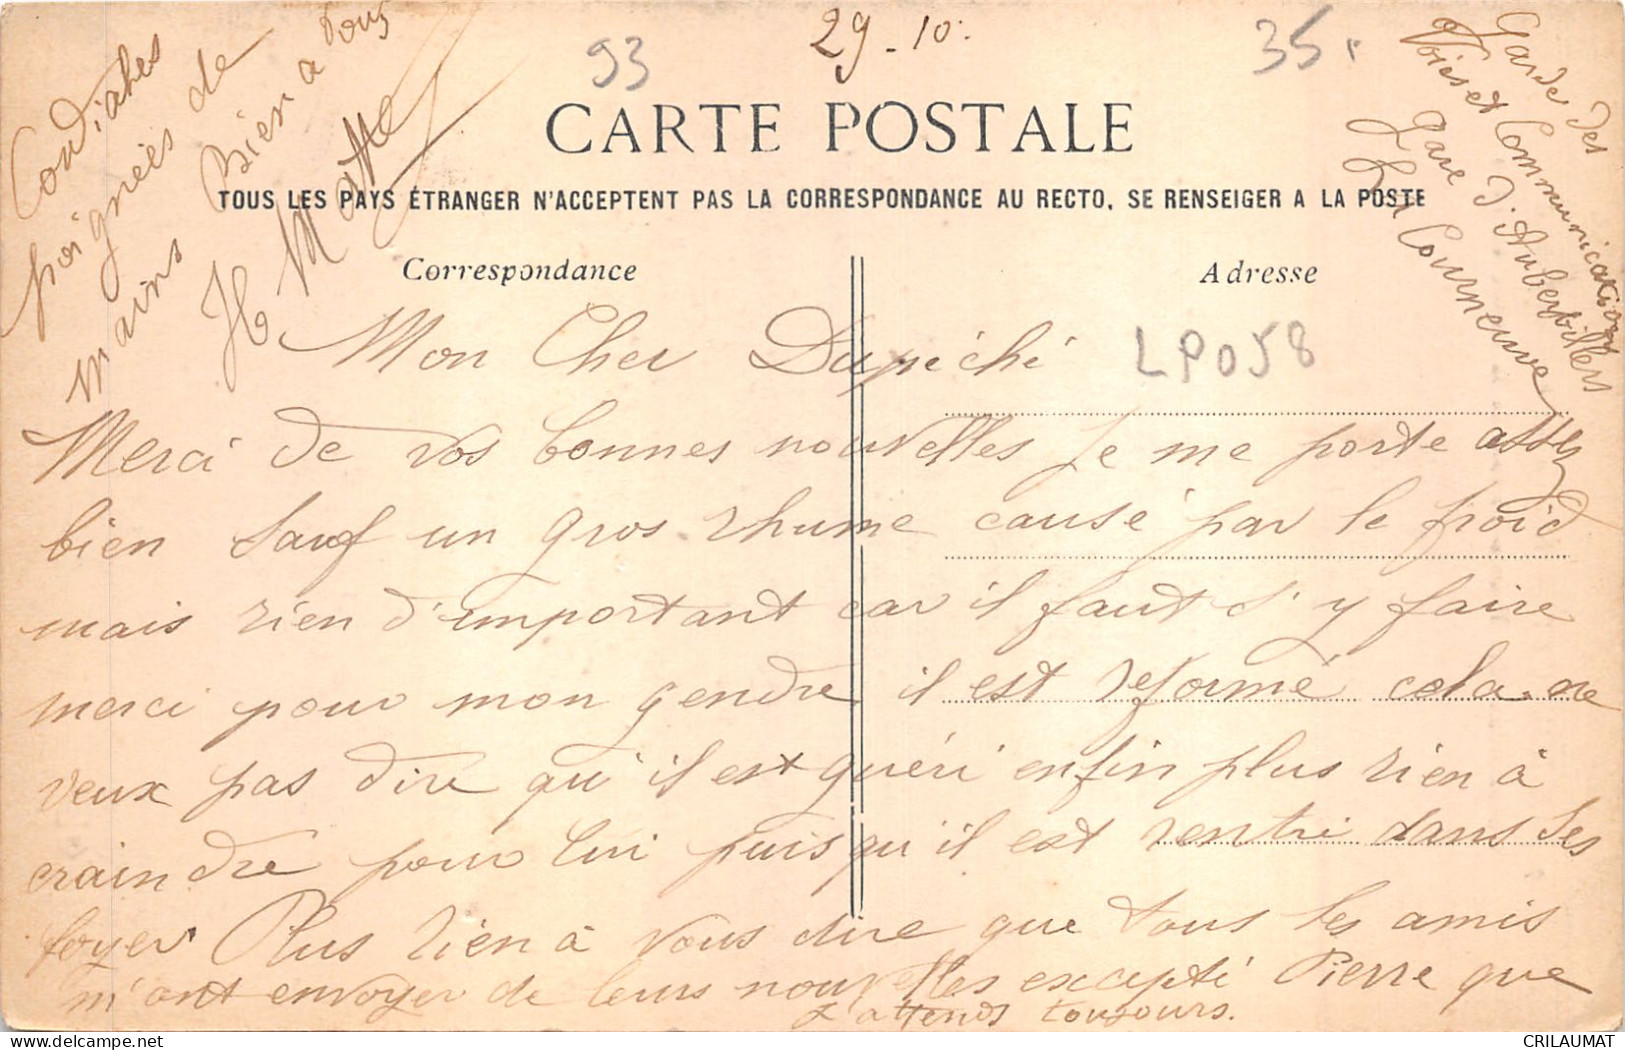 29-10.
93
35.
CARTE POSTALE
TOUS LES PAYS ÉTRANGER N'ACCEPTENT PAS LA CORRESPONDANCE AU RECTO, SE RENSEIGER A LA POSTE
Correspondance
Adresse
LP058
Mon Cher Dupéché
Merci de vos bonnes nouvelles Je me porte assez
bien sauf un gros rhume causé par le froid
mais rien d'important car il faut s'y faire
merci pour mon gendre il est reformé cela ne
veux pas dire qu'il est guéri enfin plus rien à
craindre pour lui puisqu'il est rentré dans ses
foyer Plus rien à vous dire que tous les amis
m'ont envoyer de leurs nouvelles excepté Pierre que
j'attends toujours.
Cordiales
poignées de
mains Bien à vous
H Matte
Garde des
Voies et Communications
Gare d'Aubervilliers
La Courneuve
CRILAUMAT